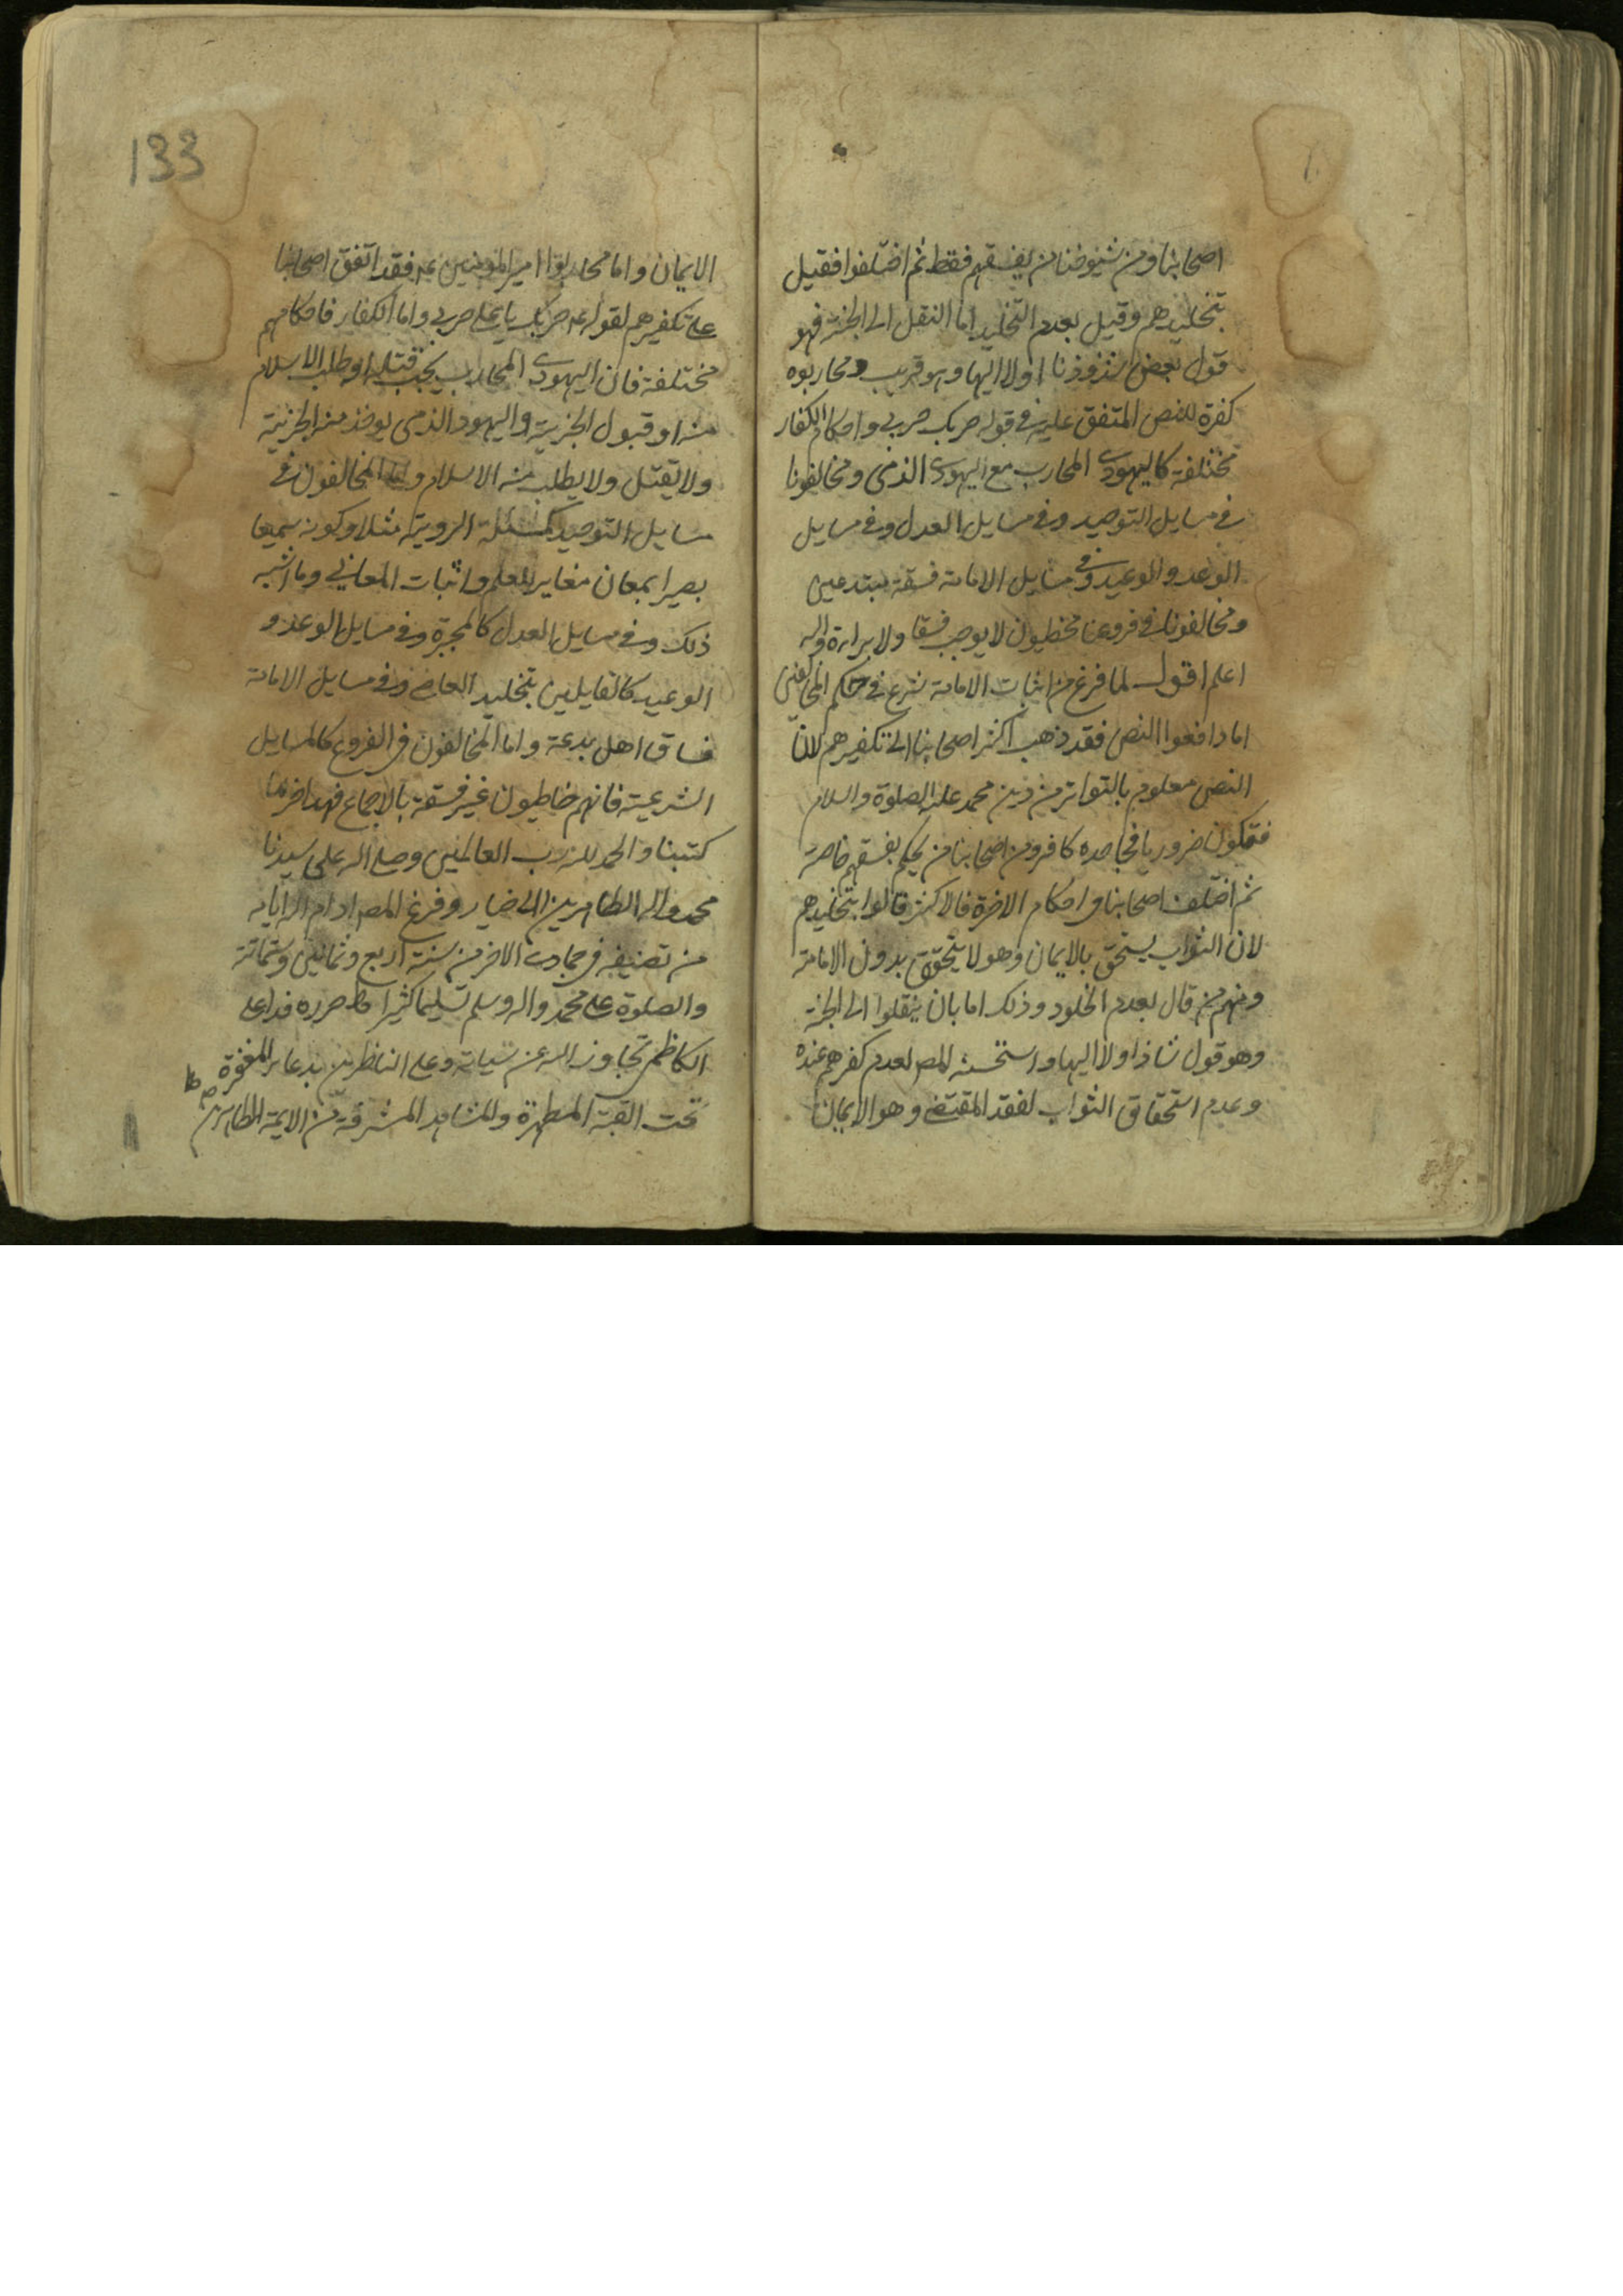 اصحابنا ومن شيوخنا من يفسقهم فقط ثم اختلفوا فقيل
بتخليدهم وقيل بعدم التخليد اما النقل الى الجنة فهو
قول بعض شذوذنا اولا اليها وهو قريب ومحاربوه
كفرة للنص المتفق عليه في قوله حربك حربي واحكام الكفار
مختلفة كاليهودي المحارب مع اليهودي الذمى ومخالفونا
في مسايل التوحيد وفي مسايل العدل وفي مسايل
الوعد والوعيد وفي مسايل الامامة فسقة مبتدعين
ومخالفونا في فروعنا مخطيون لا يوجب فسقا ولا براءة والله
اعلم اقول لما فرغ من اثبات الامامة شرع في حكم المخالفين
اما دافعوا النص فقد ذهب اكثر اصحابنا الى تكفيرهم لان
النص معلوم بالتواتر من دين محمد عليه الصلوة والسلام
فيكون ضروريا فجاحده كافر ومن اصحابنا من يحكم بفسقهم خاصة
ثم اختلف اصحابنا في احكام الاخرة فالاكثر قالوا بتخليدهم
لان الثواب يستحق بالايمان وهو لا يتحقق بدون الامامة
ومنهم من قال بعدم الخلود وذلك اما بان ينقلوا الى الجنة
وهو قول شاذ اولا اليها واستحسنه المص لعدم كفرهم عنده
وعدم استحقاق الثواب لفقد المقتضى وهو الايمان
133
الايمان واما محاربوا امير المؤمنين عه فقد اتفق اصحابنا
على تكفيرهم لقوله عه حربك يا على حربي واما الكفار فاحكامهم
مختلفة فان اليهودى المحارب يجب قتله او طلب الاسلام
منه او قبول الجزية واليهود الذمى يوخذ منه الجزية
ولا يقتل ولا يطلب منه الاسلام واما المخالفون في
مسايل التوحيد كمسئلة الروية مثلا وكونه سميعا
بصيرا بمعان مغاير للعلم واثبات المعاني وما اشبه
ذلك وفي مسايل العدل كالمجبرة وفي مسايل الوعد و
الوعيد كالقايلين بتخليد العاصى وفي مسايل الامامة
فساق اهل بدعة واما المخالفون في الفروع كالمسايل
الشرعية فانهم خاطيون غير فسقة بالاجماع فهذا اخر ما
كتبنا والحمد لله رب العالمين وصلى الله على سيدنا
محمد واله الطاهرين الاخيار وفرغ المص ادام الله ايامه
من تصنيفه في جمادى الاخر من سنة اربع وثمانين وستمائة
والصلوة على محمد واله وسلم تسليما كثيرا حرره فداعلى
الكاظمي تجاوز الله عن سياته وعلى الناظرين بدعاء المغفرة
تحت القبة المطهرة والمشاهد المشرفة من الايمة الطاهرين